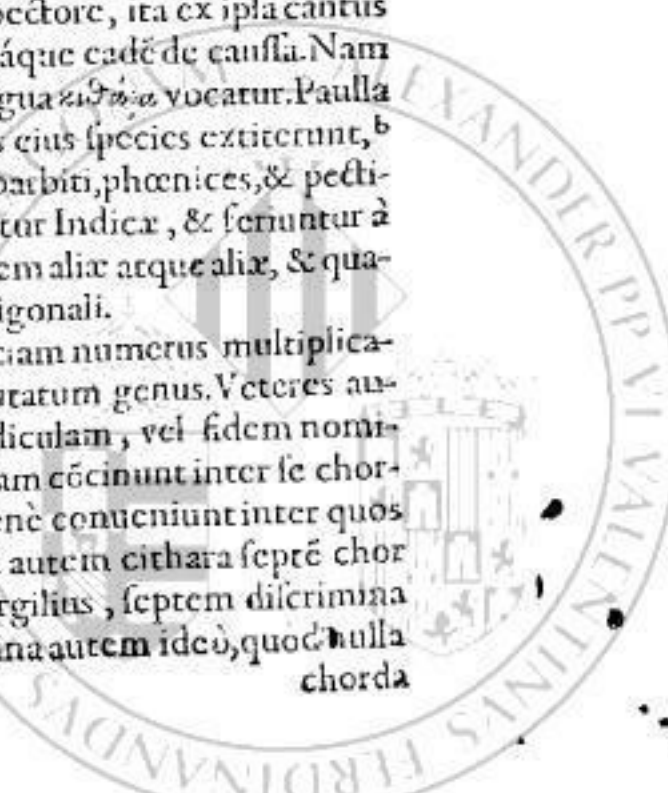 pectore, ita ex ipsa cantus
áque eadē de caussa. Nam
gua κιθάρα vocatur. Paulla
s eius species extiterunt, b
barbiti, phœnices, & pecti-
tur Indicæ, & feriuntur à
em aliæ atque aliæ, & qua-
igonali.
ciam numerus multiplica-
utatum genus. Veteres au-
diculam, vel fidem nomi-
am cōcinunt inter se chor-
enè conueniunt inter quos
autem cithara septē chor
rgilius, septem discrimina
ana autem ideò, quod nulla
chorda
ALEXANDER PP VI VALENTINVS FERDINANDVS